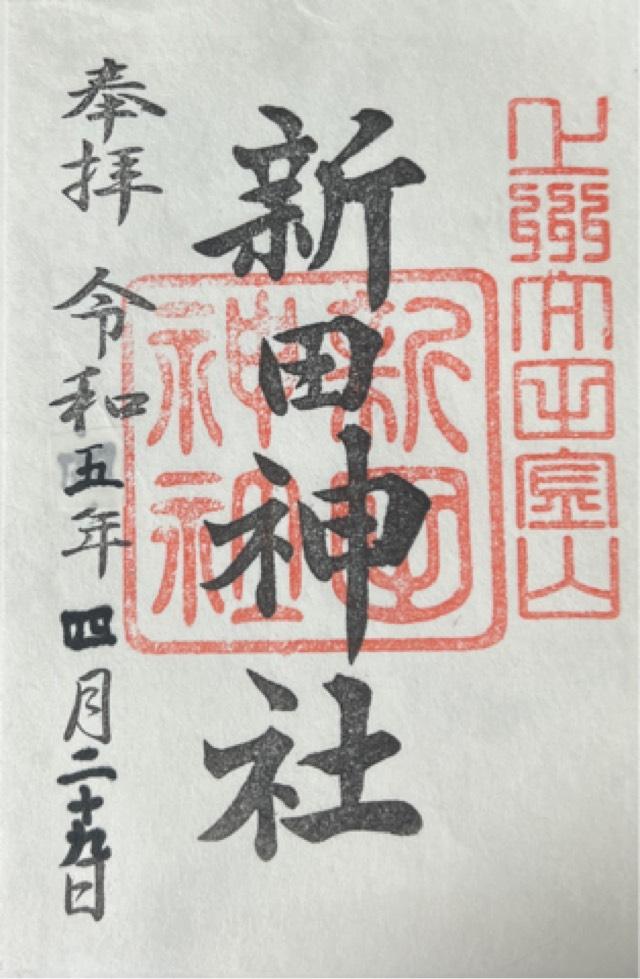 上州太田金山
新田神社
新田
神社
奉拝 令和五年四月二十九日